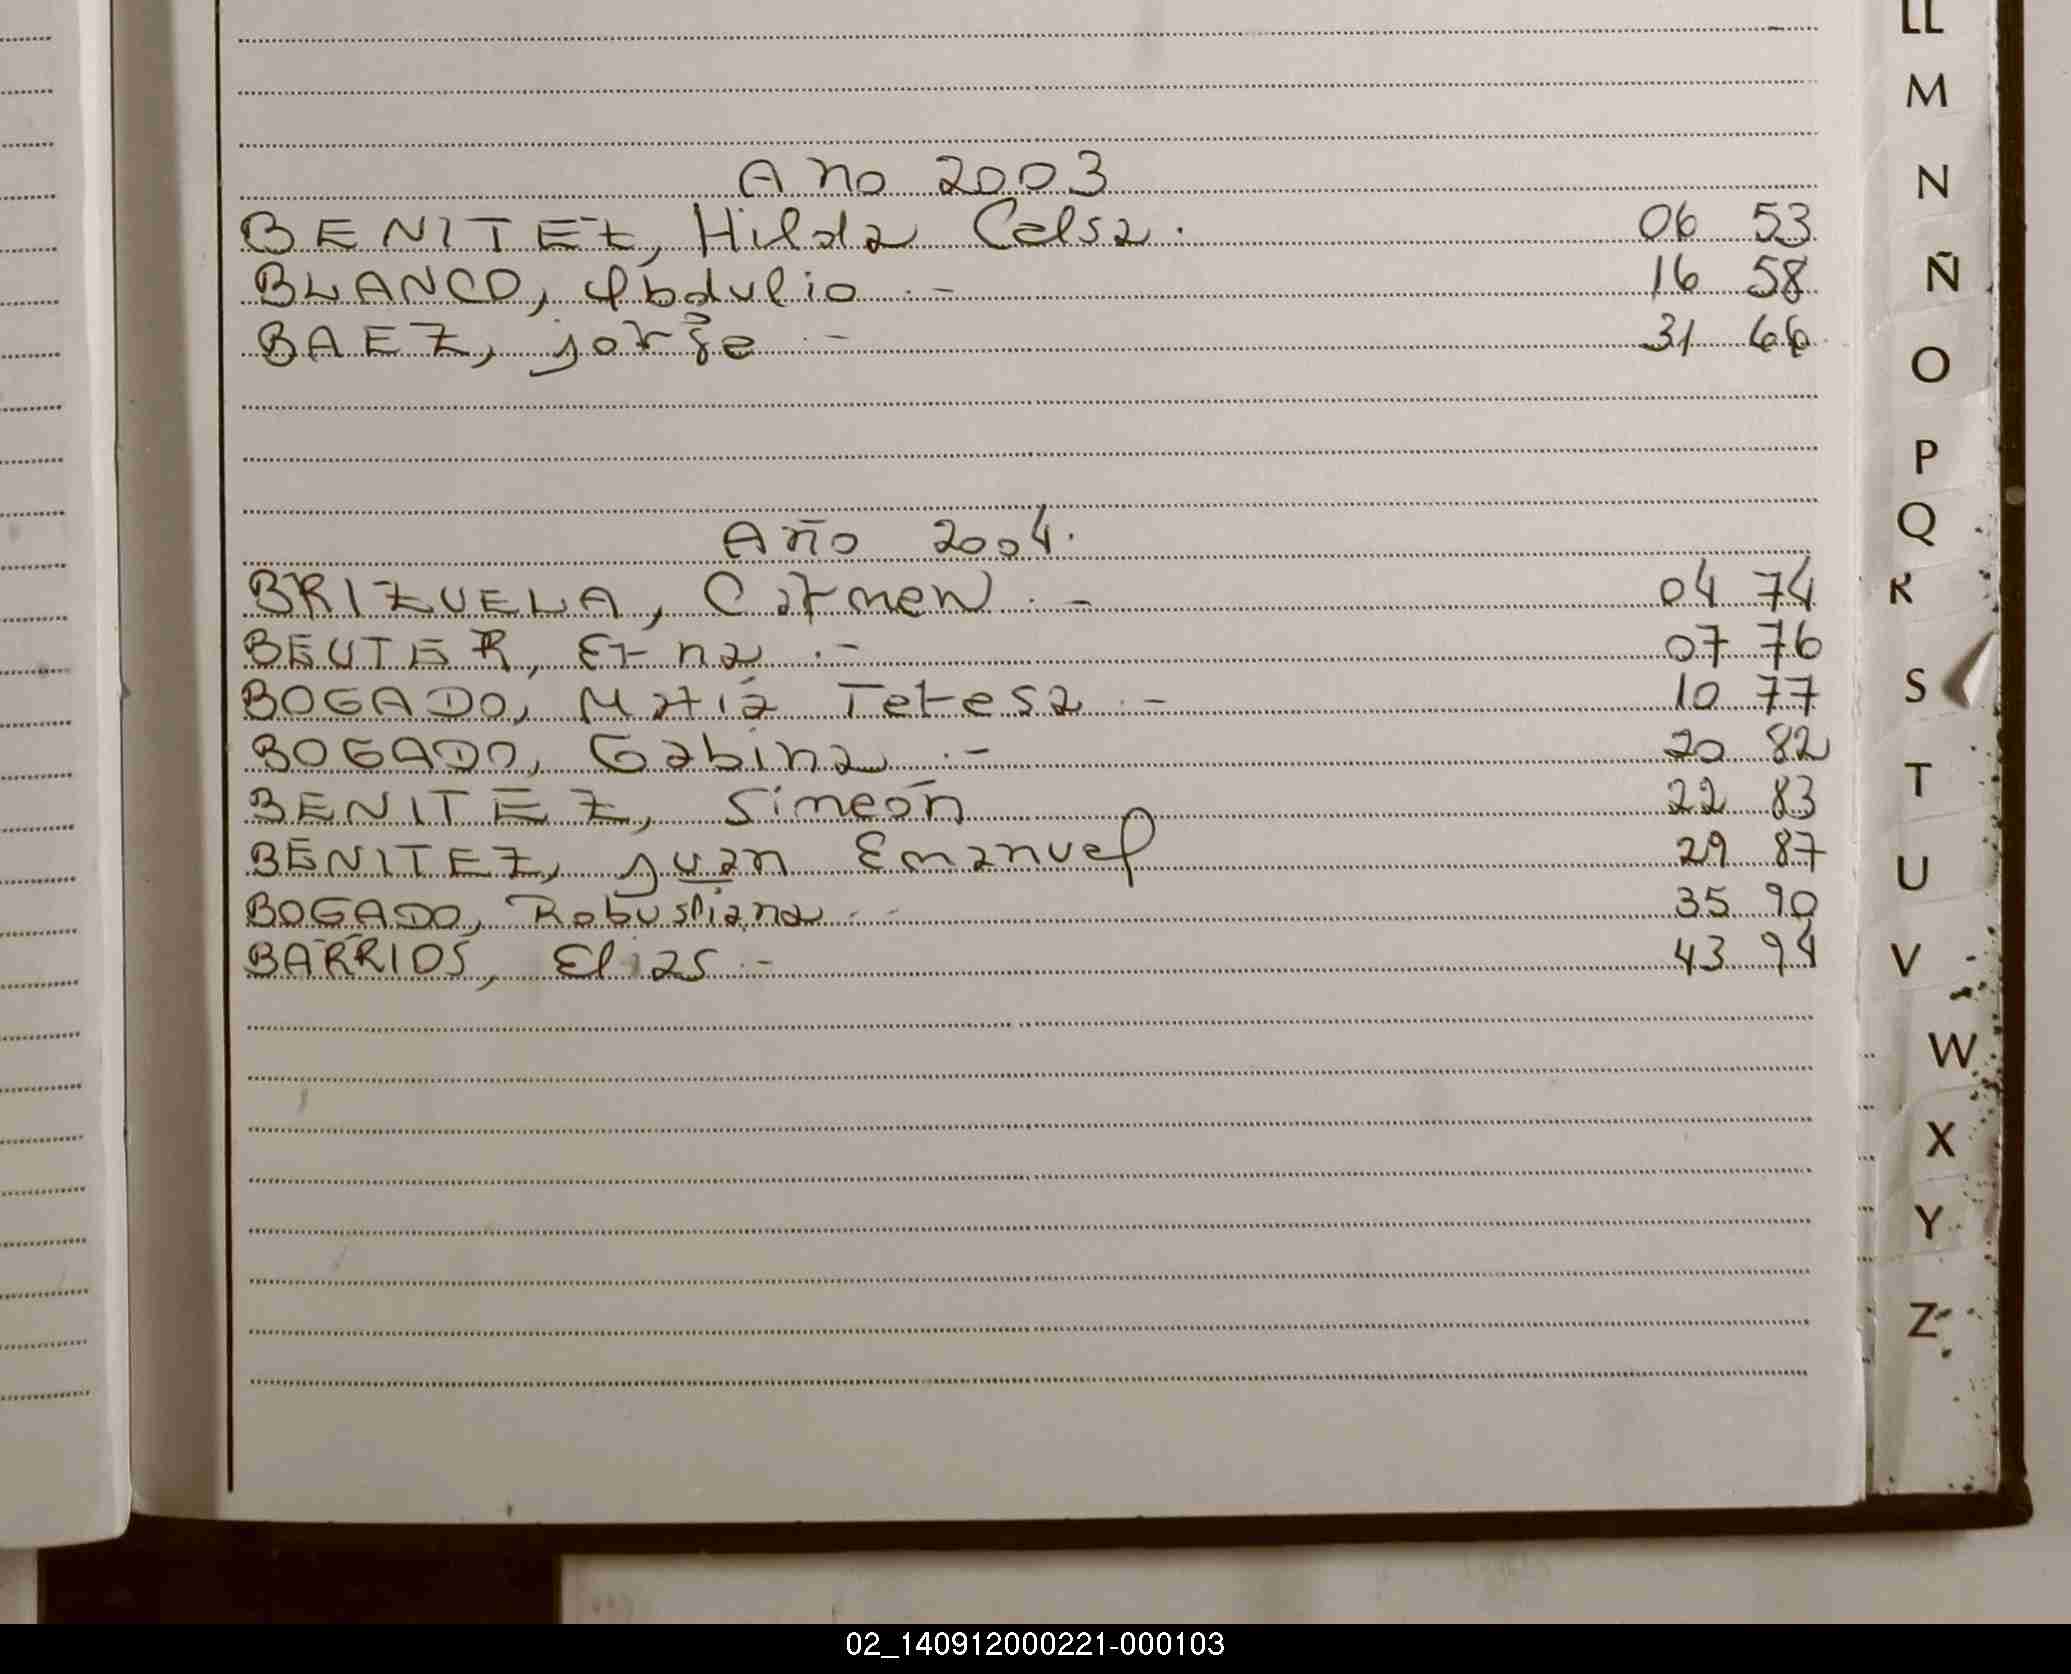 Año 2003
BENITEZ, Hilda Celsa. 06 53
BLANCO, Obdulio .- 16 58
BAEZ, jorge .- 31 66
Año 2004.
BRIZUELA, Carmen .- 04 74
BEUTER, Erna .- 07 76
BOGADO, Maria Teresa .- 10 77
BOGADO, Gabina .- 20 82
BENITEZ, Simeón 22 83
BENITEZ, Juan Emanuel 29 87
BOGADO, Robustiana .- 35 90
BARRIOS, Elias .- 43 94
LL
M
N
Ñ
O
P
Q
R
S
T
U
V
W
X
Y
Z
02_140912000221-000103